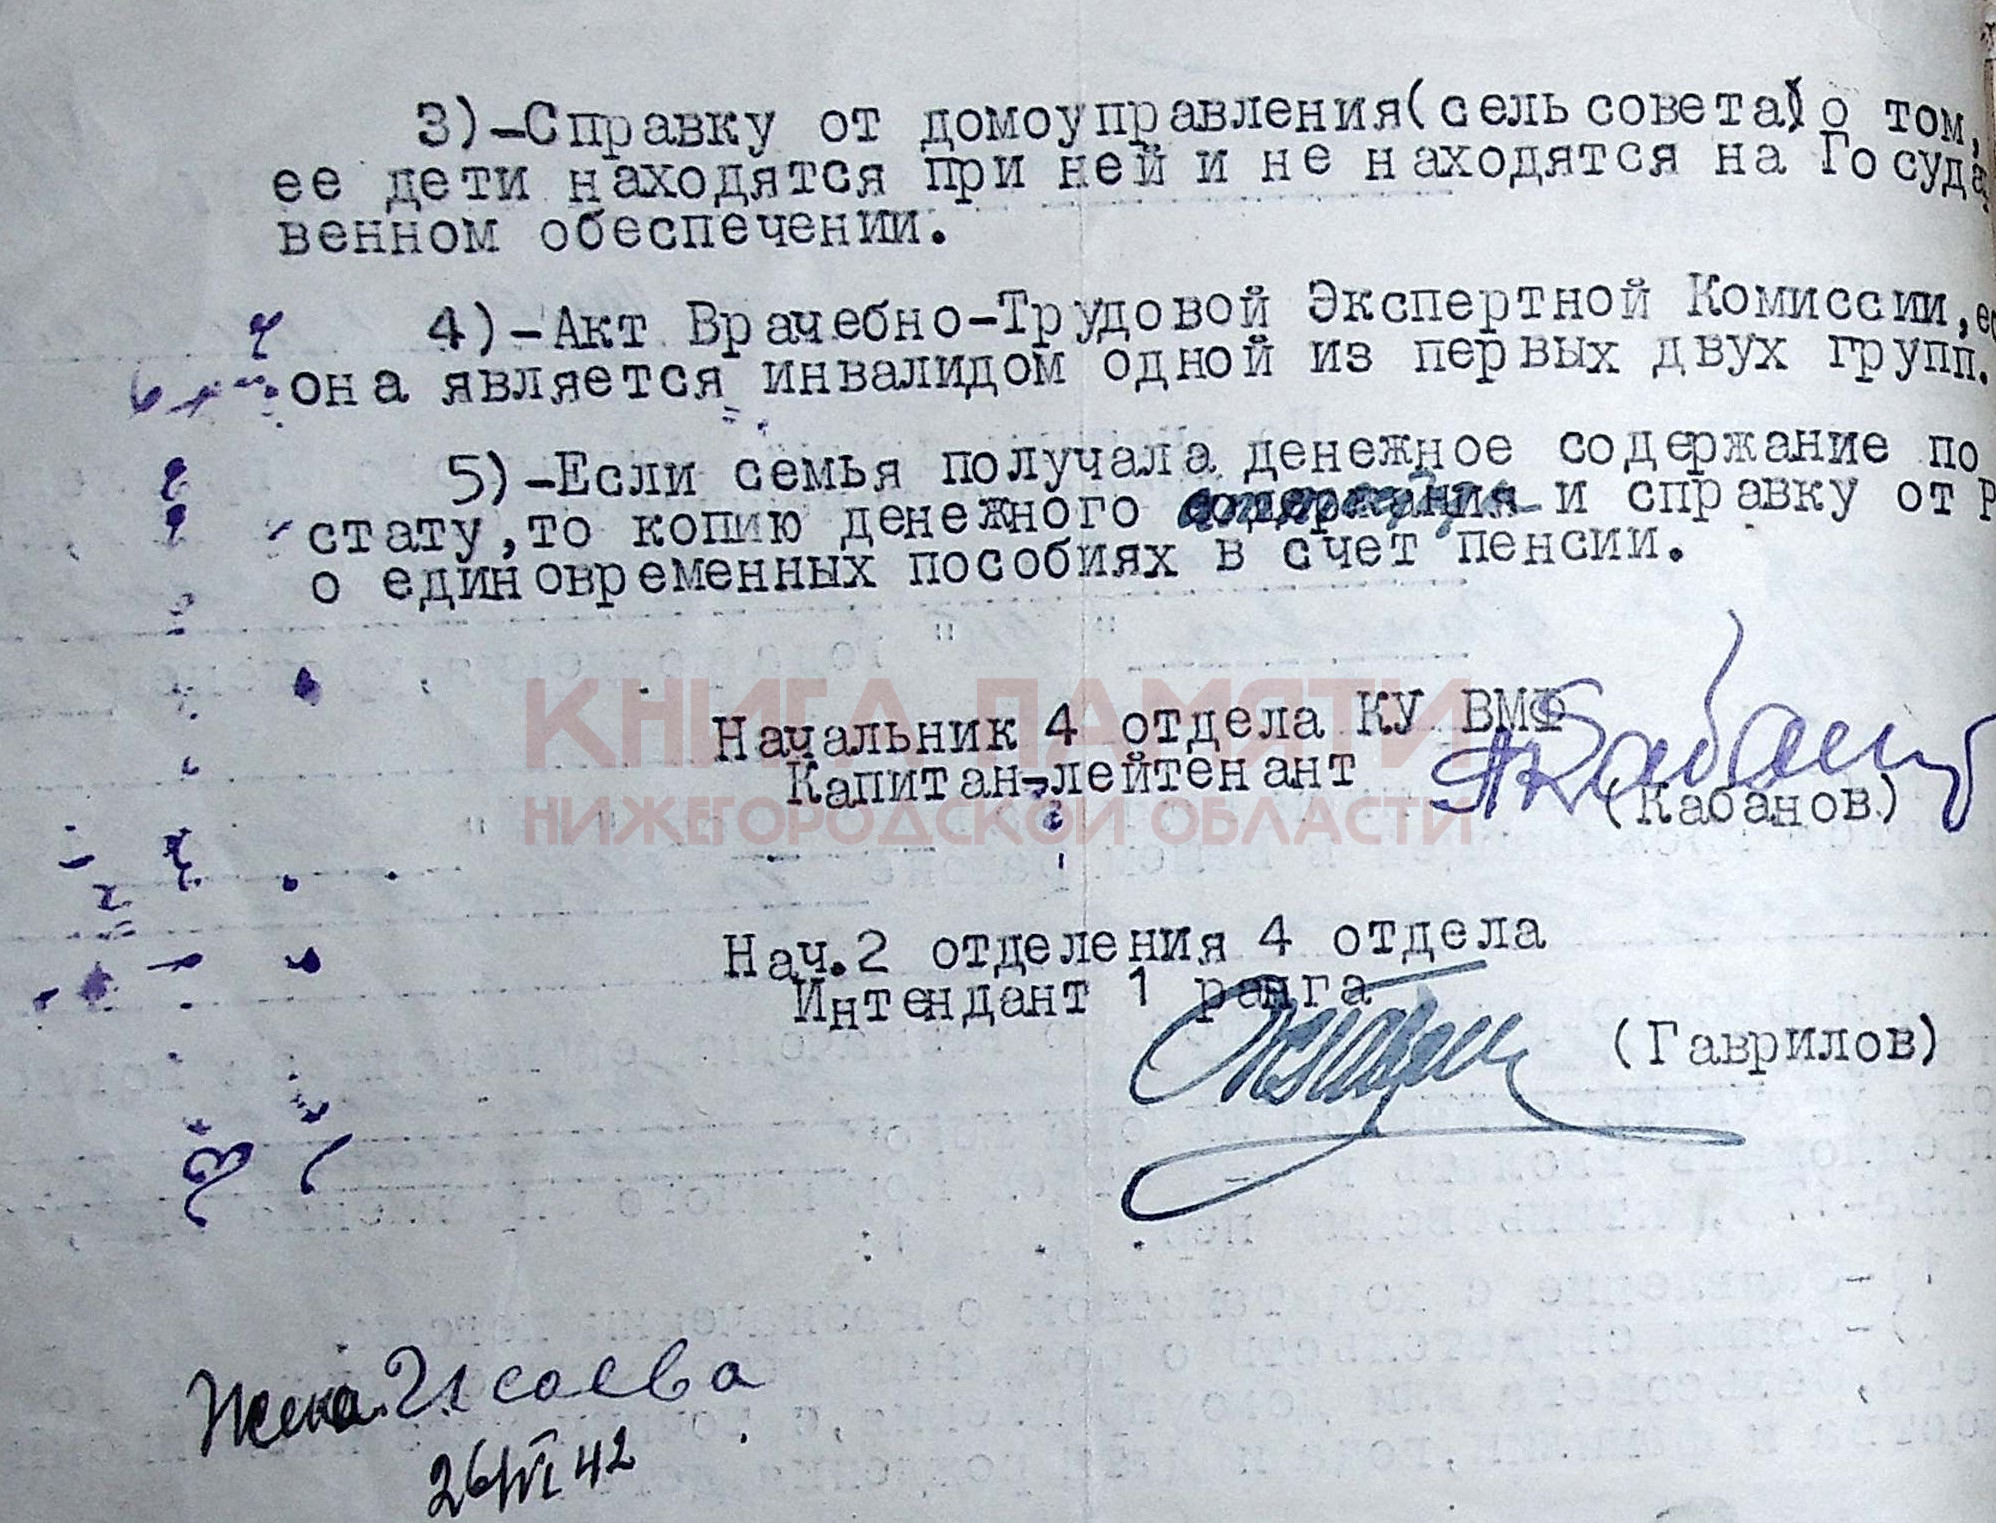 3)-Справку от домоуправления(сельсовета) о том,
ее дети находятся при ней и не находятся на Госуда
венном обеспечении.
4)-Акт Врачебно-Трудовой Экспертной Комиссии, ес
она является инвалидом одной из первых двух групп.
5)-Если семья получала денежное содержание по
стату,то копию денежного аттестата и справку от Р
о единовременных пособиях в счет пенсии.
КНИГА ПАМЯТИ
НИЖЕГОРОДСКОЙ ОБЛАСТИ
Начальник 4 отдела КУ ВМФ
Капитан-лейтенант
Кабанов
(Кабанов)
Нач.2 отделения 4 отдела
Интендант 1 ранга
(Гаврилов)
Жена Исаева
26/VI 42